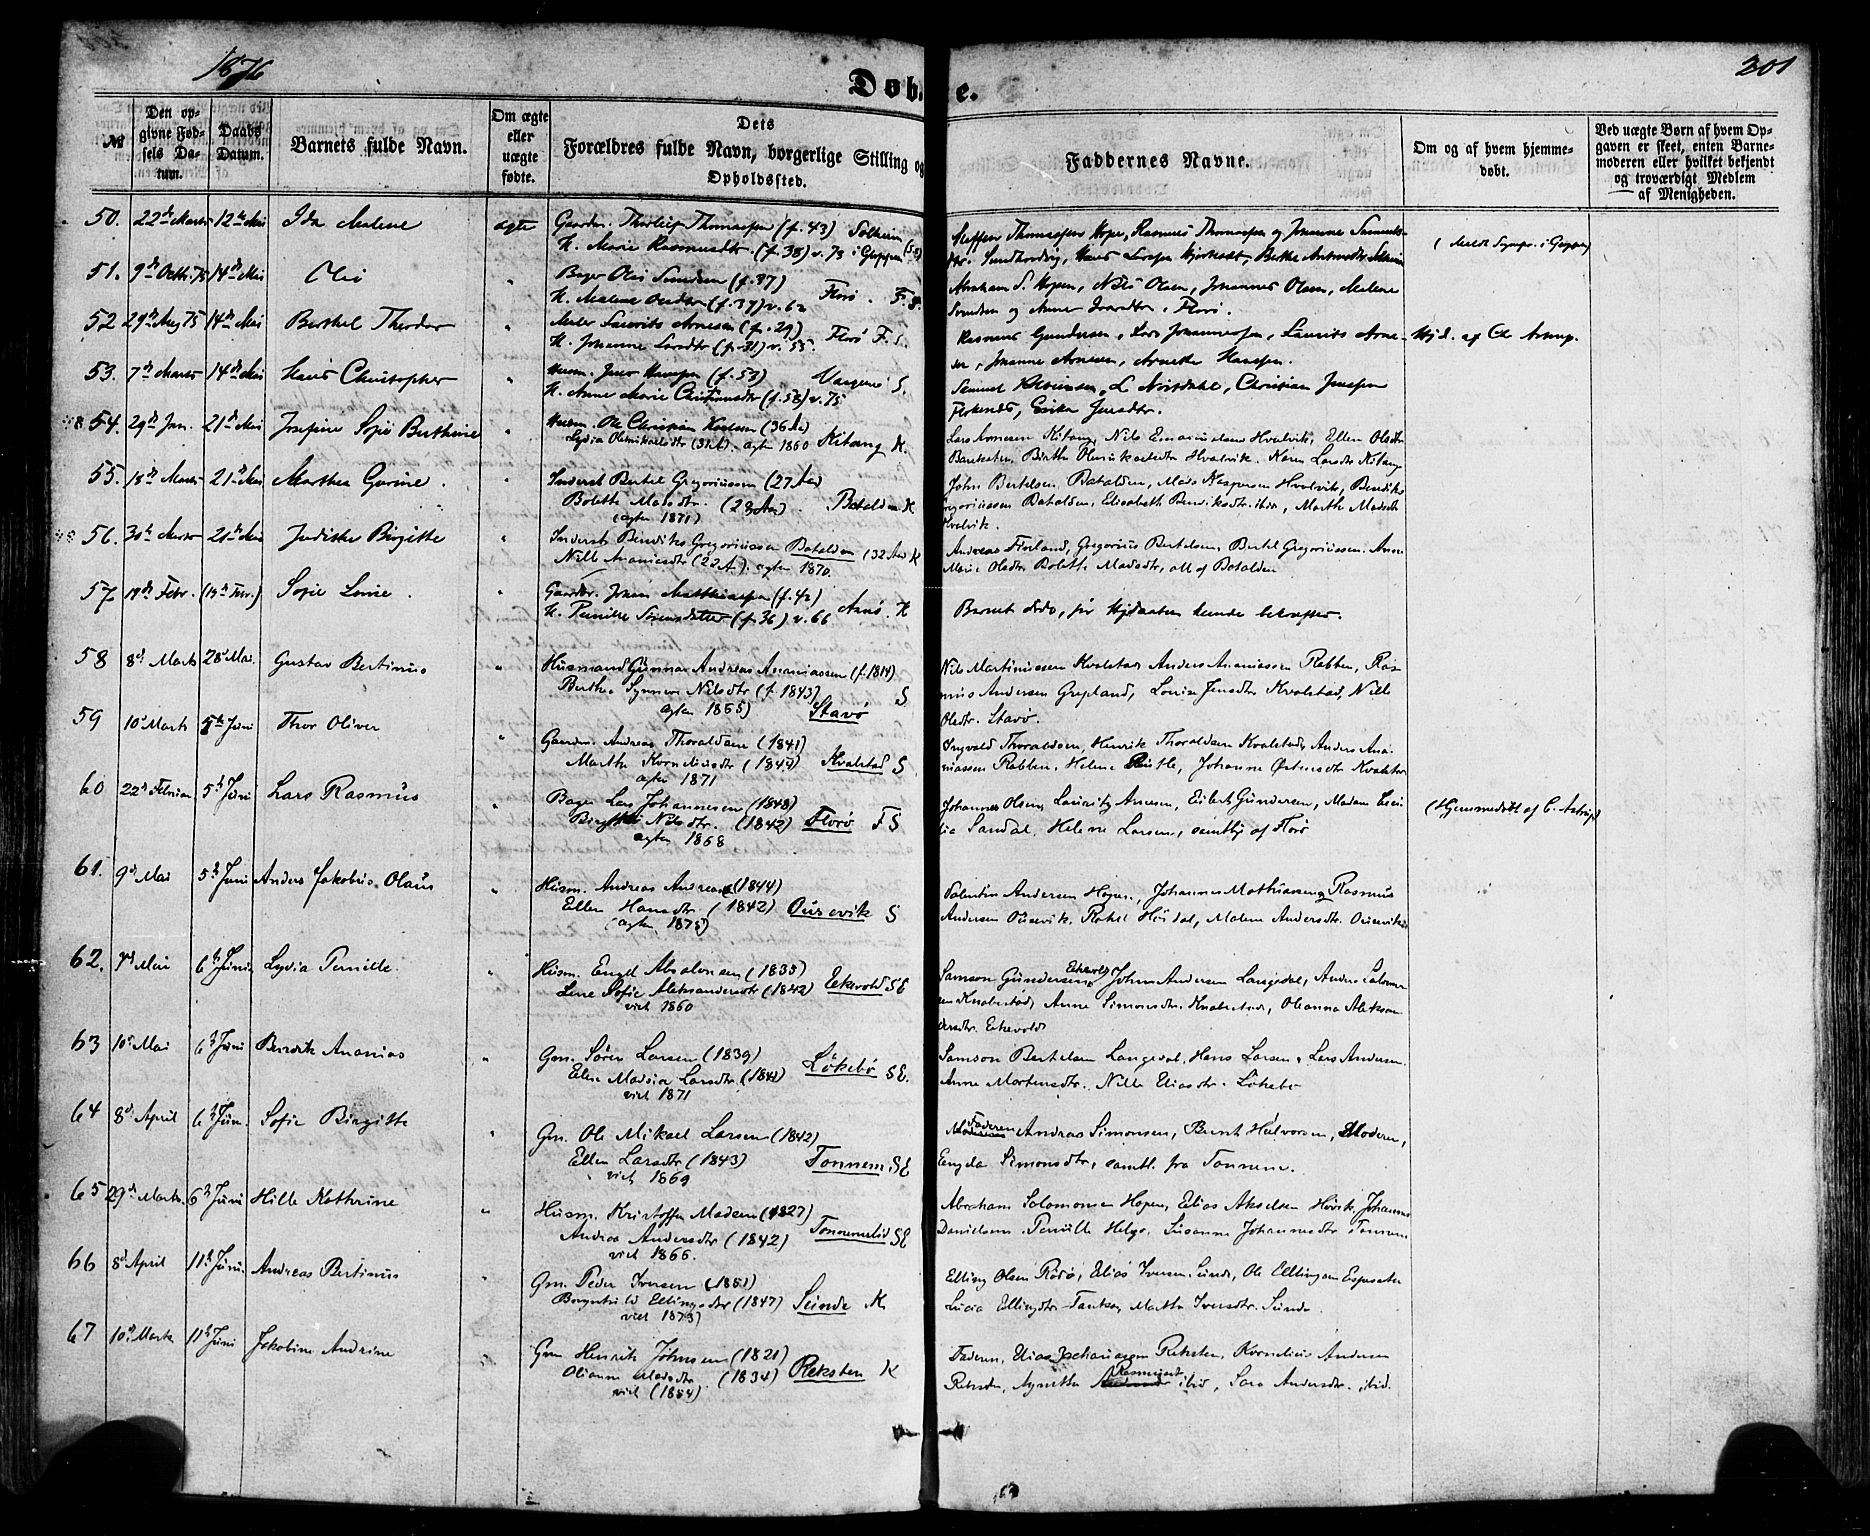 1876
Døb
e.
201
No
Den opgivne Fødsels Datum.
Daabs Datum.
Barnets fulde Navn.
Om ægte eller uægte fødte.
Dets Forældres fulde Navn, borgerlige Stilling og Opholdssted.
Faddernes Navne.
Om og af hvem hjemmedøbt.
Ved uægte Børn af hvem Opgaven er skeet, enten Barnemoderen eller hvilket bekjendt og troværdigt Medlem af Menigheden.
50. 22de Marts 12te Mai Ida Malene ægte Gaardm. Thomassen (f. 43) Solheim
K. Marie Rasmusdtr. (f. 38) v. 73 i Gloppen
Steffen Thomassen Hope, Rasmus Thomassen og Johanne
51. 9de Octbr. 75 14de Mai Oli " Bager Oli Svendsen (f. 37)
K. Malene Olsdtr (f. 37) v. 62 Florø. F. S.
Abraham S. Hopen, Nils Olsen, Johannes Olsen, Malene
Svendsen og Anne Florø.
52 29de Aug 75 14de Mai Berthel Theodor " Laurits Arnesen (f. 29)
K. Johanne Larsdtr (f. 31) v. 55. Florø F. S.
Rasmus Gundersen, Lars Johannessen, Laurits Arnesen, Johanne Arnesen, Arnette Hansen.
Hjd. af Ch Astrup.
53. 7de Marts 14de Mai Hans Christopher " Husm. Jens Hansen (f. 53)
K. Anne Marie Christiansdtr (f. 58) v. 75 S.
L. Nordahl, Christian Jensen
54. 29de Jan. 21de Mai Josefine Sofie Berthine " Husm. Ole Christian (36 Aar)
Lydia Olemikaelsdtr (31 A). ægtev 1860 Kitang K.
Lars Arnesen Kitang, Nils Hvalvik, Ellen Olsdtr
Bareksten, Birthe Olemikaelsdtr Hvalvik, Karen Larsdtr Kitang
55. 18de Marts 21de Mai Marthea Gurine. " Inderst Bertil Gregoriussen (27 Aar)
Bolette Madsdtr. (28 Aar). Batalden K
(ægtev 1871)
John Bertelsen Batalden, Mads Kaspersen Hvalvik, Benediks
Gregoriussen Batalden, Elisabeth Bendiksdtr ibid, Marthe Madsdtr
Hvalvik.
56. 30te Marts 21de Mai Judithe Birgitte " Inderst Bendiks Gregoriussen Batalden (32 Aar K
Nille Ananiasdtr (22 A). ægtev 1870.
Andreas Florland, Gregorius Bertelsen, Bertil Gregoriussen. Anne
Marie Olsdtr Bolette Madsdtr, all af Batalden
57 19de Febr. (19de Febr.) Sofie Lovise. " Gaardm. Johan Matthiassen (f. 42)
K. Pernille Sørensdatter (f. 36) v. 66 Arnø. K
Barnet døde, før Hjdaaben kunde bekræftes.
58 8de Marts 28de Mai. Gustav Bertinus " Husmand Gunnar Andreas Ananiassen (f. 1814)
Berthe Synneve Nilsdtr (f 1843) S
ægtev 1865) Stavø
Nils Martinussen Kvalstad Anders Ananiassen Rabben, Rasmus Andersen Grepland, Lovise Jensdtr Kvalstad, Nille
Olsdtr. Stavø.
59 10de Marts 5te Juni Thor Oliver " Gaardm. Andreas Thoraldsen (1841)
Marthe Korneliusdtr (1849) Kvalstad S
ægtev 1871
Ingvald Thoraldsen, Henrik Thoraldsen Kvalstad, Anders Ananiassen Rabben, Helene, Johanne Østensdtr Kvalstad
60 22de Februar 5te Juni Lars Rasmus " Bager Lars Johannesen (1848)
Birgithe Nilsdtr. (1842) Florø F S
ægtev 1868
Johannes Olsen, Lauritz Arnesen, Eilert Gundersen, Madam
Sandal, Helene Larsen, samtlig af Florø
(Hjemmedøbt af C. Astrup)
61. 9de Mai 5te Juni Anders Jakobus Olaus " Husm. Andreas Andreas (1844)
Ellen Hansdtr. (1842) Ousevik S
(ægtev 1875)
Valentin Andersen Hopen, Johannes Mathiassen, Rasmus
Andersen Ousevik, Rakel, Malene Andersdtr. Ousevik
62. 7de Mai 6te Juni Lydia Pernille. " Husm. Engel Absalonsen (1835)
Lene Sofie Aleksandersdtr (1842) Eikevold SE
viet 1860
Samson Gundersen Eikevold, Johan Andersen Langedal, Anders Salomonsen Knabestad, Anne Simonsdtr Knabestad, Oleanna Aleksandersdtr. Eikevold
63 10de Mai 6te Juni Bendik Ananias " Gm. Søren Larsen (1839)
Eline Madsia Larsdtr. (1842) Løkebø SE.
viet 1871
Samson Bertelsen Langedal, Hans Larsen, Lars Andersen.
Anne Mortensdtr. Nille Eliasdtr. Løkebø
64 8de April 6te Juni Sofie Birgitte " Gm. Ole Mikael Larsen (1842)
Ellen Larsdtr (1843) Tonnem SE
viet 1869
Faderen Andreas Simonsen, Bernt Halvorsen, Moderen,
Engda Simonsdtr, samtl. fra Tonnem.
65 29de Marts. 6te Juni Hille Kathrine " Husm. Kristoffer Madsen (1827)
Andrea Andersdtr (1842) Tonnemslid SE
viet 1866.
Abraham Salomonsen Hopen, Elias Akselsen Høvik, Johannes
Danielsen Pernille Helge, Susanne Johannesdtr Tonnem
66 8de April 11te Juni. Andreas Bertinus " Gm. Peder Iversen (1851)
Borghild Ellingsdtr (1847) Sunde K.
viet 1873)
Elling Olsen Rødø, Elias Iversen Sunde, Ole Ellingsen Espesæter
Lucia Ellingsdtr, Marthe Iversdtr. Sunde.
67 10de Marts 11te Juni Jakobine Andrine " Gm Henrik Johnsen (1821)
Olianne Madsdtr (1834) Reksten K
viet (1854)
Faderen, Elias Zachariassen Reksten, Kornelius Andersen
Reksten, Agnethe Rasmusdtr ibid, Sara Andersdtr. ibid.